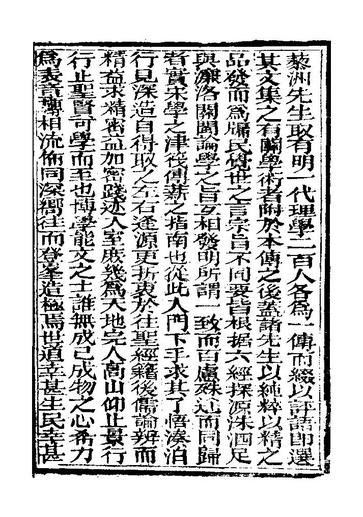 藜洲先生取有明一代理學二百人各為一傳而綴以評語即選
其文集之有關學術者附於本傳之後蓋諸先生以純粹以精之
品發而為牖民覺世之言宗旨不同要皆根据六經探源洙泗足
與濂洛關閩論學之旨互相發明所謂一致而百慮殊途而同歸
者實宋學之津筏傳薪之指南也從此入門下手求其了悟湊泊
行見深造自得取之左右逢源更折衷於往聖經籍後儒論辨而
精益求精密益加密踐迹入室庶幾為天地完人高山仰止景行
行止聖賢可學而至也博學能文之士誰無成己成物之心希力
為表章廣相流佈同深嚮往而登峯造極焉世道幸甚生民幸甚